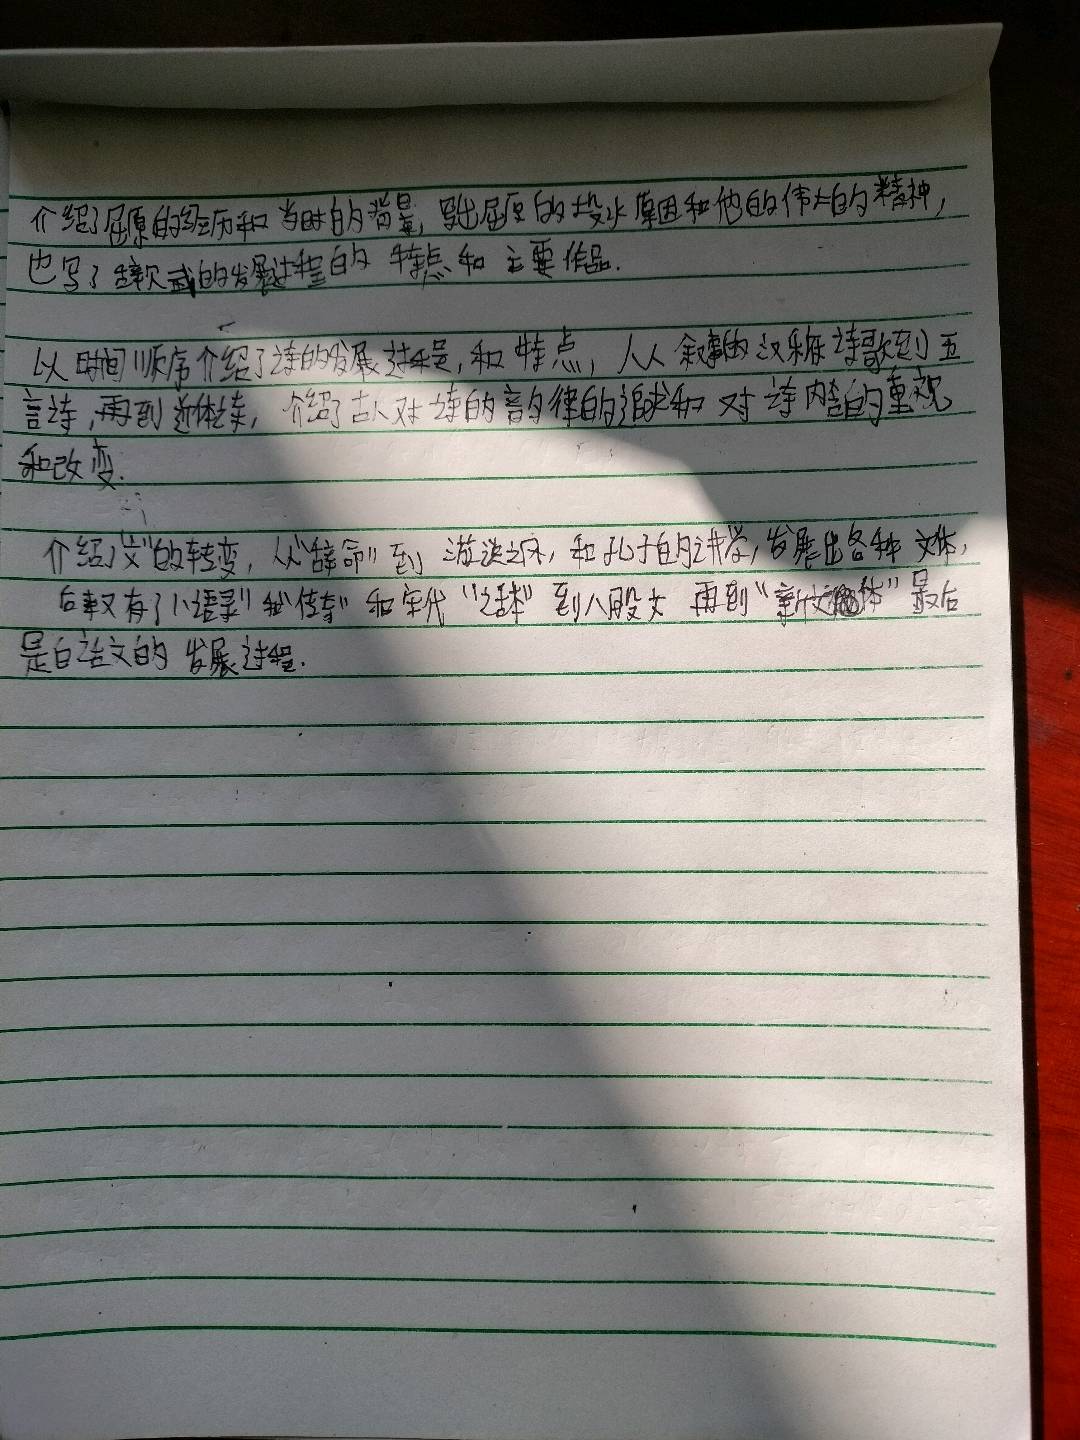 介绍了屈原的经历和当时的背景,写出屈原的投水原因和他的伟大的精神,
也写了辞赋的发展过程的特点和主要作品.
以时间顺序介绍了诗的发展过程,和特点,从叙事的汉乐府诗歌到五
言诗,再到近体诗,介绍了古人对诗的音韵律的追求和对诗内容的重视
和改变.
介绍了"文"的转变,从"辞命"到游谈之风,和孔子的讲学,发展出各种文体,
后来又有了"语录"和"传奇"和宋代"话本"到八股文再到"新文体"最后
是白话文的发展过程.